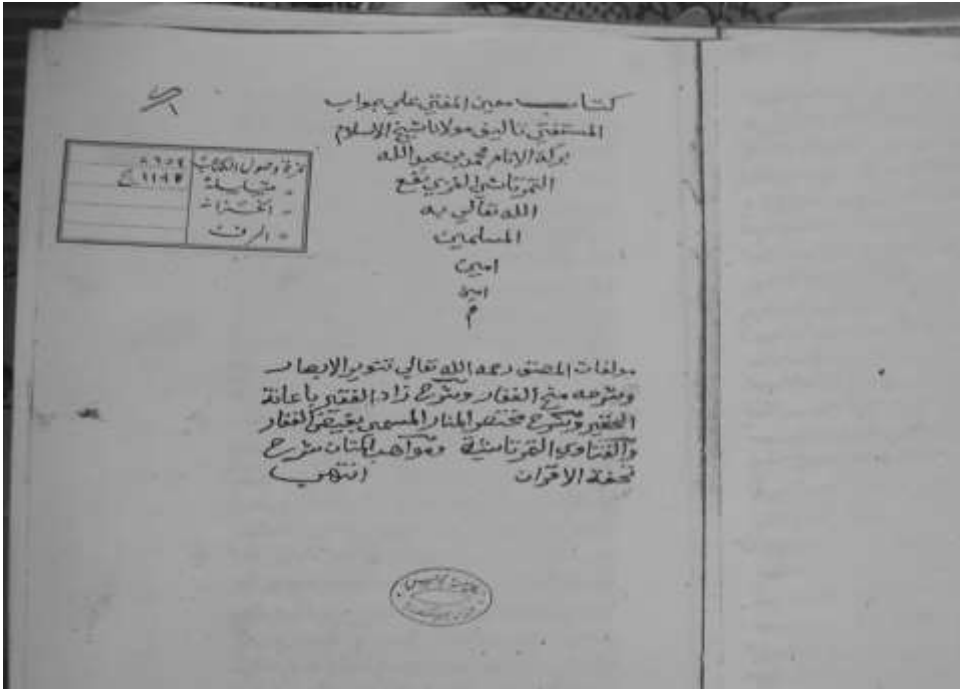 كتاب معين المفتي علي جواب
المستفتي تاليف مولانا شيخ الاسلام
بركة الانام محمد بن عبد الله
التمرتاشي الغزي نفع
الله تعالي به
المسلمين
امين
امين
م
نمرة وصول الكتاب ٨٦٥٤
الخزانة
الرف
مولفات المصنف رحمه الله تعالي تنوير الابصار
وشرحه منح الغفار وشرح زاد الفقير باعانة
الحقير وشرح مختصر المنار المسمى بفيض الغفار
والفتاوي التمرتاشية ومواهب المنان شرح
تحفة الاقران انتهى